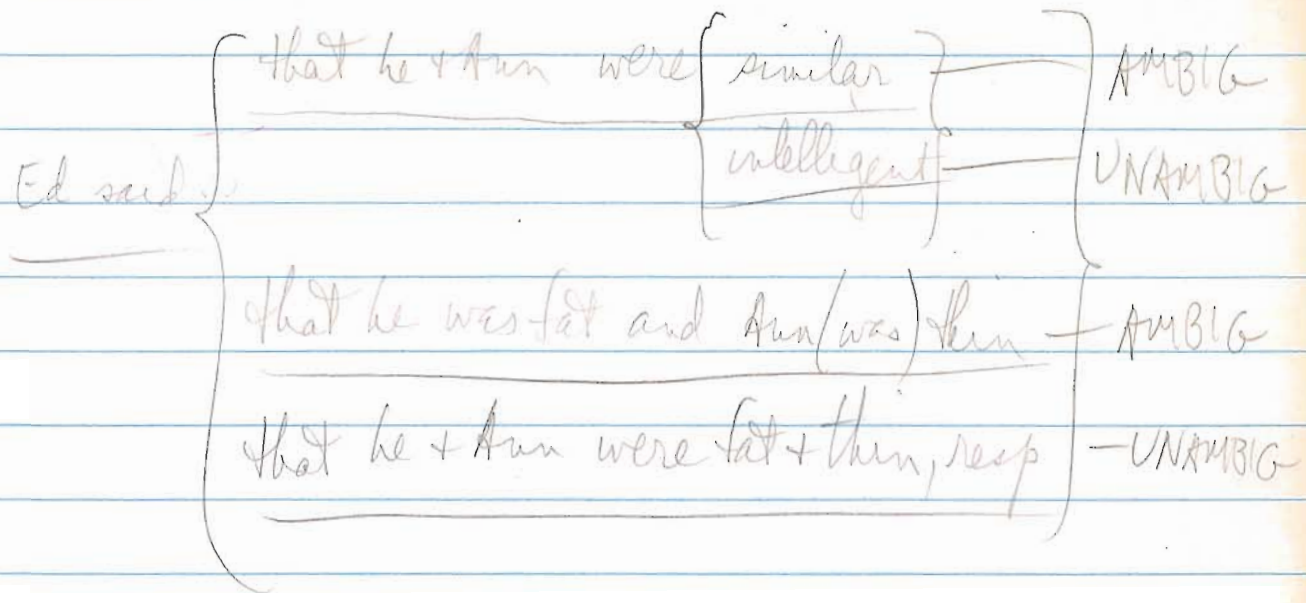 that he + Ann were similar AMBIG
Ed said intelligent UNAMBIG
that he was fat and Ann (was) thin — AMBIG
that he + Ann were fat + thin, resp — UNAMBIG